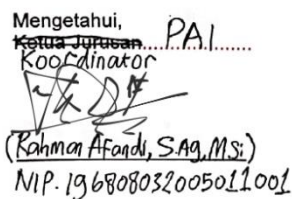 Mengetahui,
Ketua Jurusan......PAI......
Koordinator
(Rahman Afandi, S.Ag, M.Si)
NIP. 196808032005011001